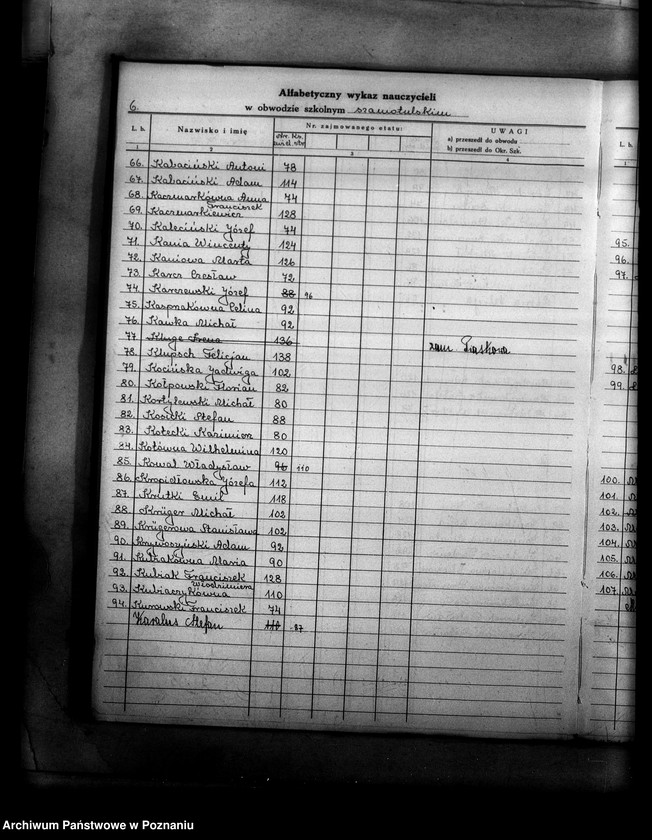 Alfabetyczny wykaz nauczycieli
6. w obwodzie szkolnym szamotulskim
L. b. Nazwisko i imię Nr. zajmowanego etatu: UWAGI
a) przeszedł do obwodu
b) przeszedł do Okr. Szk.
L. b.
1 2 3 4
66. Kabaciński Antoni 78
67. Kabaciński Adam 114
68. Kaczmarkówna Anna 74
Franciszek
69. Kaczmarkiewicz 128
70. Kaleciński Józef 74
71. Kania Wincenty 124 95.
72. Kaniowa Marta 126 96.
73. Karcz Czesław 72 97.
74. Karczewski Józef 88 96
75. Kasprzakówna Celina 92
76. Kawka Michał 92
77. Kluge Irena 136 zam. Piaskowa
78. Klupsch Felicjan 138
79. Kocińska Jadwiga 102 98.
80. Kołpowski Florian 82 99.
81. Kortylewski Michał 80
82. Kosicki Stefan 88
83. Kotecki Kazimierz 80
84. Kotówna Wilhelmina 120
85. Kowal Władysław 96 110
86. Kropidłowska Józefa 112 100.
87. Krutki Emil 118 101.
88. Krüger Michał 102 102.
89. Krügerowa Stanisława 102 103.
90. Krzywoszyński Adam 92 104.
91. Kubiakówna Maria 90 105.
92. Kubiak Franciszek 128 106.
Włodzimiera
93. Kubiaczykówna 110 107.
94. Kurowski Franciszek 74
Karalus Stefan 110 -87
Archiwum Państwowe w Poznaniu